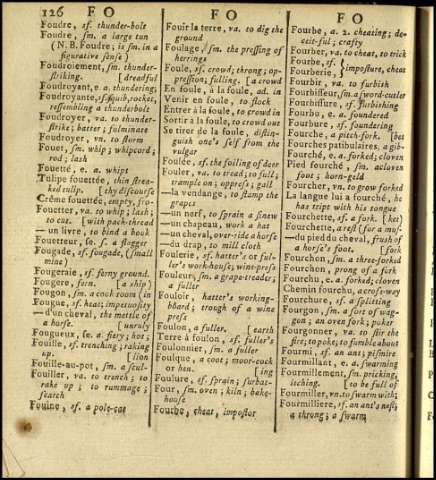 126 FO FO FO
Foudre, sf. thunder-bolt
Foudre, sm. a large tun
(N. B. Foudre; is sm. in a
figurative sense)
Foudroiement, sm. thunder-
striking. [dreadful
Foudroyant, e, a. thundering;
Foudroyante, sf. squib, rocket,
resembling a thunderbolt
Foudroyer, va. to thunder-
strike; batter; fulminate
Foudroyer, vn. to storm
Fouet, sm. whip; whipcord;
rod; lash
Fouetté, e, a. whips
Tulipe fouettée, thin strea-
ked tulip. [thy discourse
Crême fouettée, empty, fro-
Fouetter, va. to whip; lash;
to cut. [with pack-thread
— un livre, to bind a book
Fouetteur, se. s. a flogger
Fougade, sf. fougade, (small
mine)
Fougeraie, sf. ferny ground.
Fougere, fern. [a ship)
Fougon, sm. a cook room (in
Fougue, sf. heat; impetuosity
—d'un cheval, the mettle of
a horse. [unruly
Fougueux, se. a. fiery; hot;
Fouille, sf. trenching; raking
up. [lion
Fouille-au-pot, sm. a scul-
Fouiller, va. to trench; to
rake up; to rummage;
search
Fouine, sf. a pole-cat
Fouir la terre, va. to dig the
ground
Foulage, sm. the pressing of
herrings
Foule, sf. crowd; throng; op-
pression; fulling. [a crowd
En foule, à la foule, ad. in
Venir en foule, to flock
Entrer à la foule, to crowd in
Sortir à la foule, to crowd out
Se tirer de la foule, distin-
guish one's self from the
vulgar
Foulée, sf. the foiling of deer
Fouler, va. to tread; to full;
trample on; oppress; gall
—la vendange, to stamp the
grapes
—un nerf, to sprain a sinew
—un chapeau, work a hat
—un cheval, over-ride a horse
—du drap, to mill cloth
Foulerie, sf. hatter's or ful-
ler's work-house; wine-press
Fouleur, sm. a grape-treader;
a fuller
Fouloir, hatter's working-
board; trough of a wine
press
Foulon, a fuller. [earth
Terre à foulon, sf. fuller's
Foulonnier, sm. a fuller
Foulque, a coot; moor-cock
or hen. [ing
Foulure, sf. sprain; surbat-
Four, sm. oven; kiln; bake-
house
Fourbe, cheat, impostor
Fourbe, a. 2. cheating; de-
ceit-ful; crafty
Fourber, va. to cheat, to trick
Fourbe, sf.
Fourberie, } imposture, cheat
Fourbir, va. to furbish
Fourbisseur, sm. a sword-cutler
Fourbissure, sf. furbishing
Fourbu, e, a. foundered
Fourbure, sf. foundering
Fourche, a pitch-fork. [bet
Fourches patibulaires, a gib-
Fourché, e, a. forked; cloven
Pied fourché, sm. a cloven
foot; horn-geld
Fourcher, vn. to grow forked
La langue lui a fourché, he
has tript with his tongue
Fourchette, sf. a fork. [ket)
Fourchette, a rest (for a mus-
—du pied du cheval, frush of
a horse's foot. [fork
Fourchon, sm. a three-forked
Fourchon, prong of a fork
Fourchu, e, a. forked; cloven
Chemin fourchu, a cross-way
Fourchure, sf. a splitting
Fourgon, sm. a sort of wag-
gon; an oven fork; poker
Fourgonner, va. to stir the
fire; to poke; to fumble about
Fourmi, sf. an ant; pismire
Fourmillant, e, a. swarming
Fourmillement, sm. pricking,
itching. [to be full of
Fourmiller, vn. to swarm with;
Fourmilliere, sf. an ant's nest;
a throng; a swarm